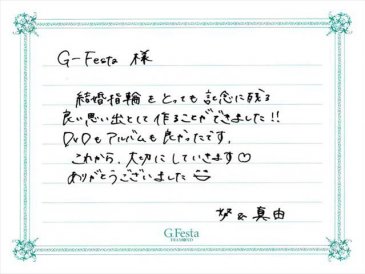 G-Festa 様
結婚指輪をとっても記念に残る
良い思い出として作ることができました!!
DVDもアルバムも良かったです。
これから、大切にしていきます♡
ありがとうございました
& 真由
G.Festa